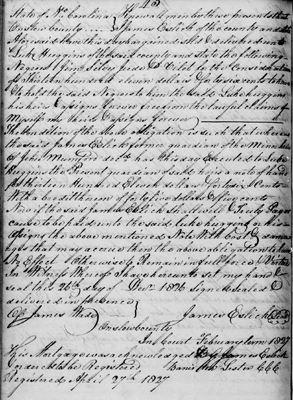 State of No. Carolina Know all men by these presents that
Onslow County James Eslick of the County and State
aforesaid have this day bargained sold & delivered unto
Luke Huggins of said County and State the following
Negroes for the Consideration
of thirteen hundred eleven dollars forty six cents to have
& to hold the said Negroes to him the said Luke Huggins
his heirs & assigns forever free from the lawful claims of
myself my heirs & assigns forever
The condition of the above obligation is such that whereas
the said James Eslick former guardian of the
of John deceased has this day executed to Luke
Huggins the present guardian of said heirs a note of hand
for thirteen hundred eleven dollars forty six cents
with a credit thereon of forty five dollars & fifty cents
Now if the said James Eslick shall well & truly pay or
cause to be paid unto the said Luke Huggins or his
assigns the aforementioned Note with cost & 
ages that may accrue then the above obligation to have
no Effect otherwise to Remain in full force & Virtue
In Witness Whereof I have hereunto set my hand &
seal this 26th day of Decr 1826 Signed Sealed &
delivered in presence
of James James Eslick (Seal)
Onslow County
In Court February term 1827
This Mortgage was acknowledged by James Eslick
Ordered to be Registered Lester CCC
Registered April 27th 1827